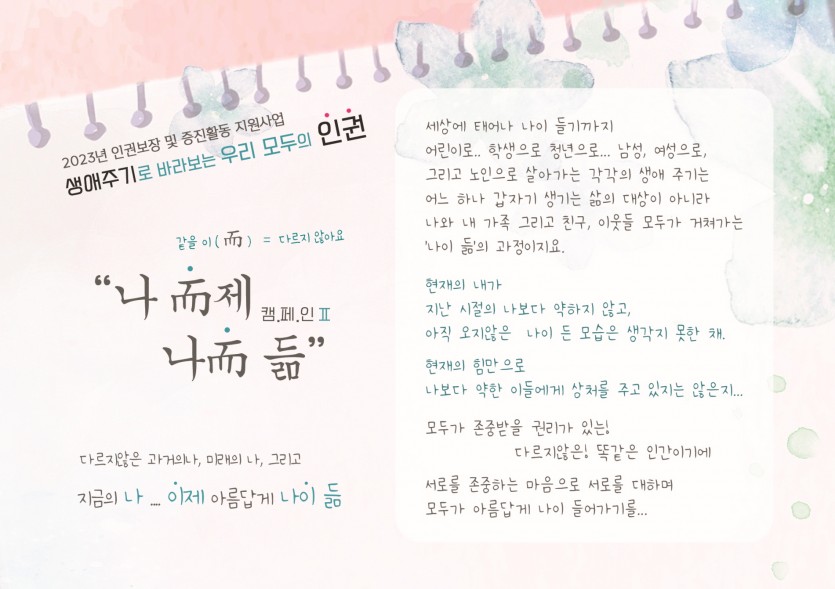 2023년 인권보장 및 증진활동 지원사업
생애주기로 바라보는 우리 모두의 인권
같을 이(而) = 다르지 않아요
“나 而제 캠.페.인 Ⅱ
나而 듦”
다르지않은 과거의나, 미래의 나, 그리고
지금의 나 .... 이제 아름답게 나이 듦
세상에 태어나 나이 들기까지
어린이로.. 학생으로 청년으로... 남성, 여성으로,
그리고 노인으로 살아가는 각각의 생애 주기는
어느 하나 갑자기 생기는 삶의 대상이 아니라
나와 내 가족 그리고 친구, 이웃들 모두가 거쳐가는
'나이 듦'의 과정이지요.
현재의 내가
지난 시절의 나보다 약하지 않고,
아직 오지않은 나이 든 모습은 생각지 못한 채.
현재의 힘만으로
나보다 약한 이들에게 상처를 주고 있지는 않은지...
모두가 존중받을 권리가 있는!
다르지않은! 똑같은 인간이기에
서로를 존중하는 마음으로 서로를 대하며
모두가 아름답게 나이 들어가기를...